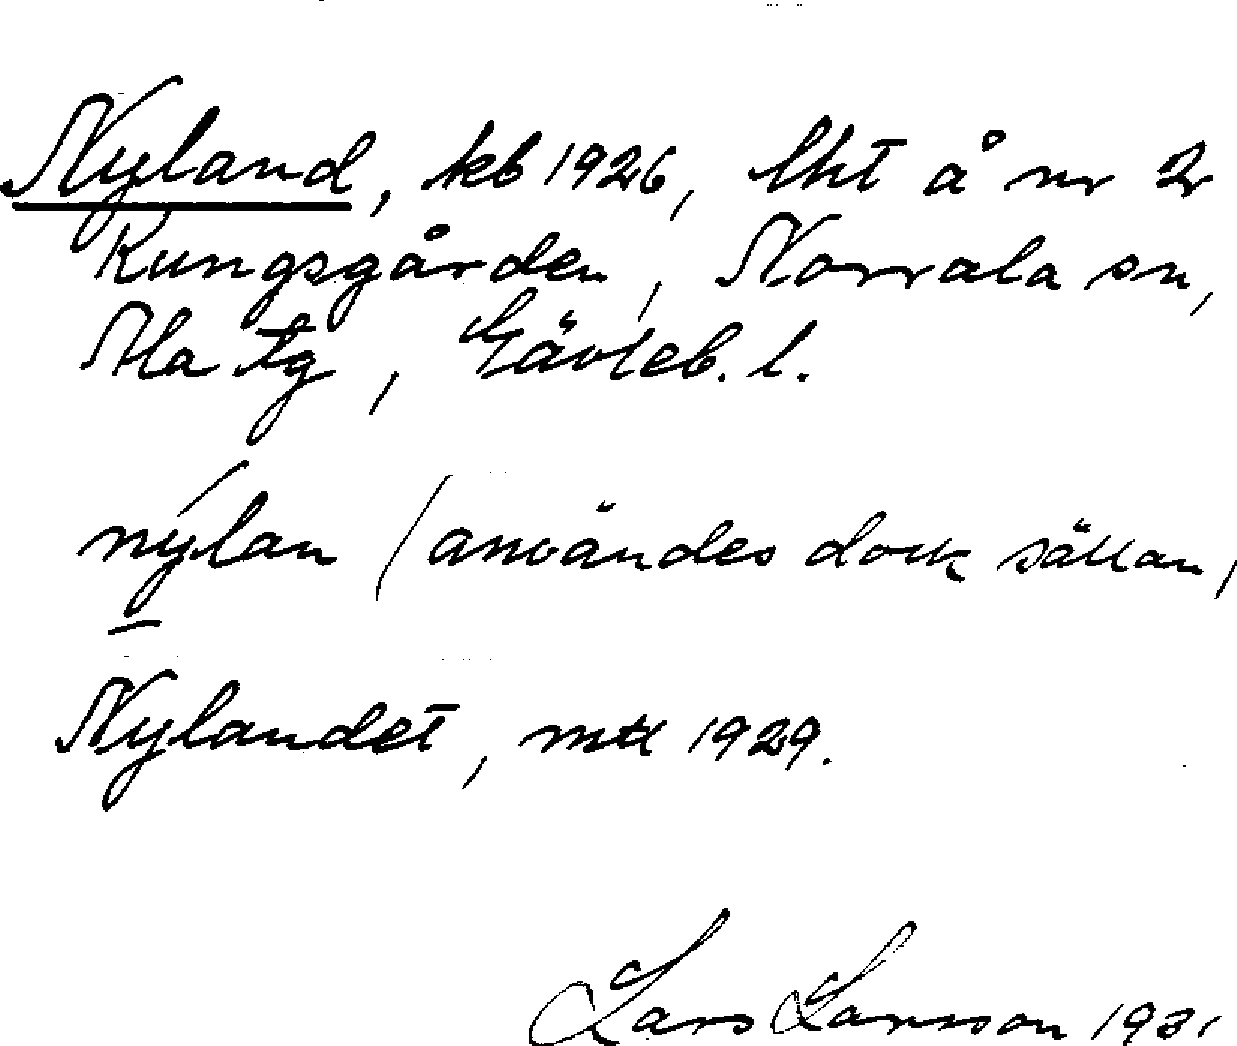 Nyland, kb 1926, lht å nr 2
Kungsgården, Norrala sn,
Ala tg, Gävleb. l.
nýlan (användes dock sällan,
Nylandet, mtl 1929.
Lars Larsson 1931